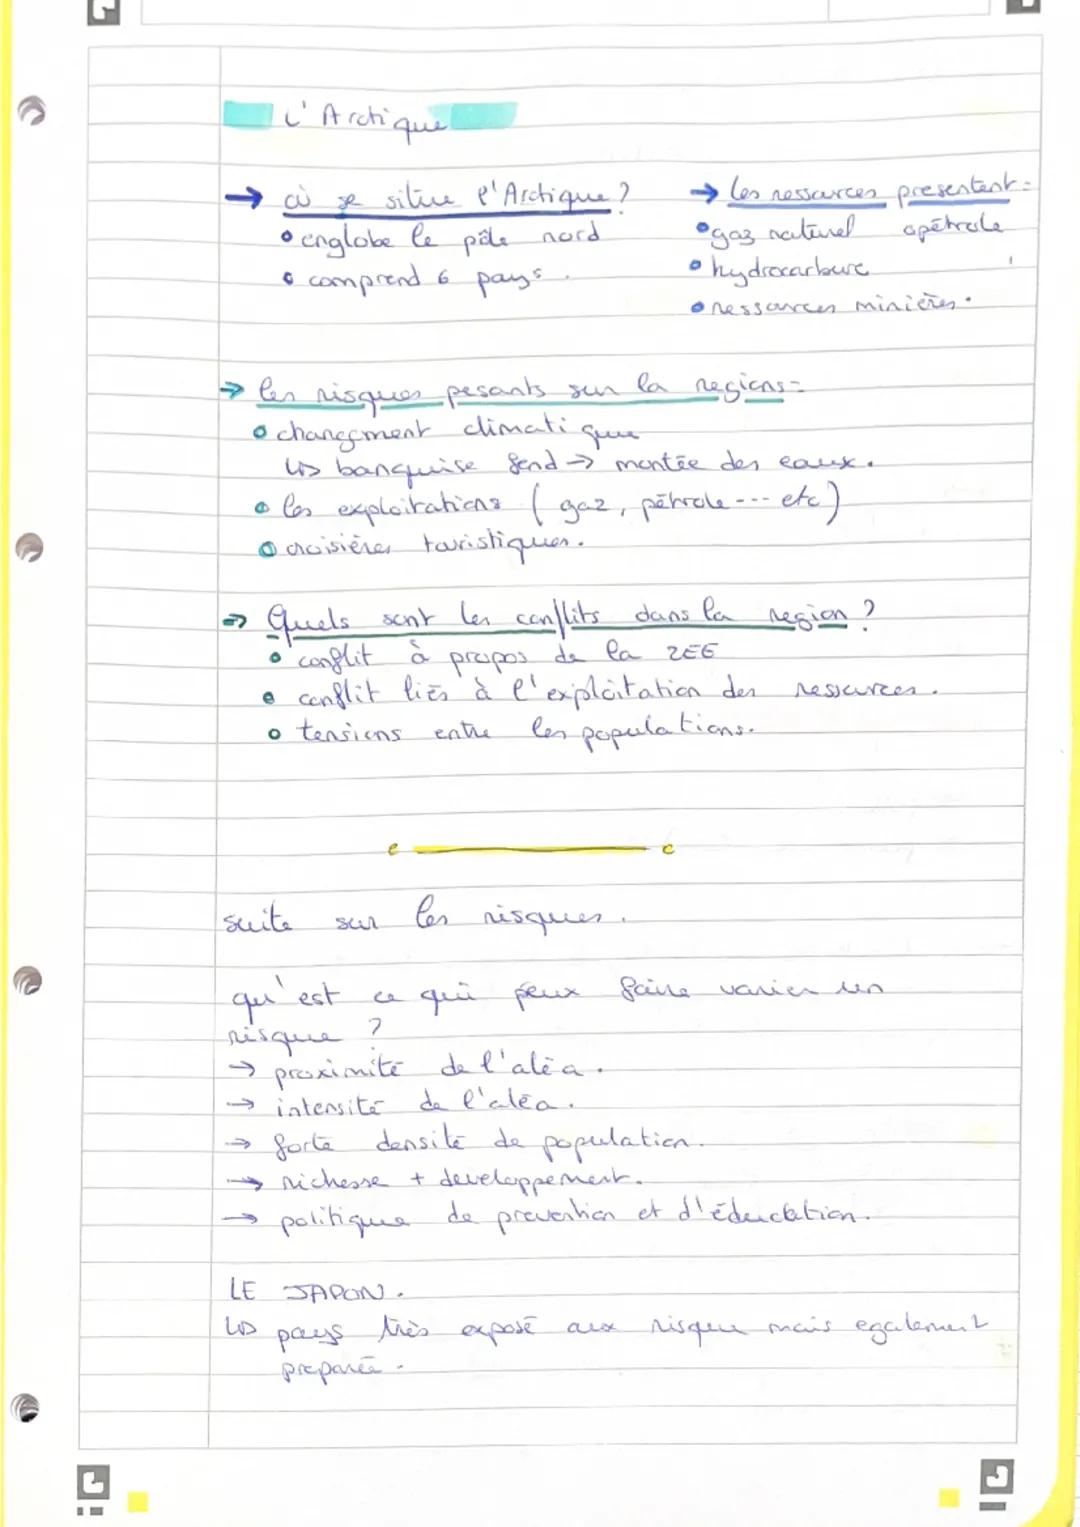 L'Arctique
→ où se situe l'Arctique ?
• englobe le pôle nord
• comprend 6 pays.
→ les ressources presentent :
• gaz naturel opétrole
• hydrocarbure
• ressources minières.
→ les risques pesants sur la regions :
• changement climatique
↳ banquise fond → montée des eaux.
• les exploitations ( gaz, pétrole --- etc)
• croisières touristiques.
→ Quels sont les conflits dans la region ?
• conflit à propos de la ZEE
• conflit liés à l'exploitation des ressources.
• tensions entre les populations.
suite sur les risques.
qu'est ce qui peux faire varier un
risque ?
→ proximité de l'aléa.
→ intensité de l'aléa.
→ forte densité de population.
→ richesse + developpement.
→ politique de prevention et d'éducation.
LE JAPON.
↳ pays très exposé aux risque mais egalement
preparée.